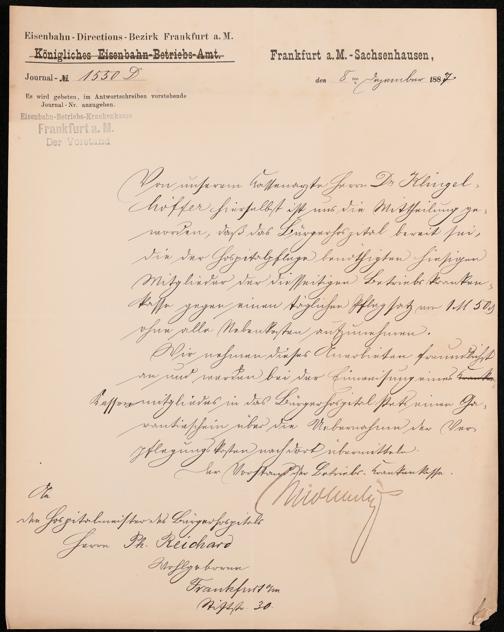 Eisenbahn-Directions-Bezirk Frankfurt a. M.
Königliches Eisenbahn-Betriebs-Amt.
Journal-№ 1530 D
Frankfurt a. M.-Sachsenhausen,
den 8ten Dezember 1887
Es wird gebeten, im Antwortschreiben vorstehende
Journal-Nr. anzugeben.
Eisenbahn-Betriebs-Krankenkasse
Frankfurt a. M.
Der Vorstand
Von unserem Kassenarzte Herrn Dr Klingel-
höffer hierselbst ist uns die Mittheilung ge-
worden, daß das Bürgerhospital bereit sei,
die der Hospitalpflege benöthigten hiesigen
Mitglieder der diesseitigen Betriebskranken-
kasse gegen einen täglichen Pflegsatz von 1 M 50
ohne alle Nebenkosten aufzunehmen.
Wir nehmen dieses Anerbieten freundlichst
an und werden bei der Einweisung eines Kranken
Kassenmitgliedes in das Bürgerhospital stets einen Ga-
rantieschein über die Uebernahme der Ver-
pflegungskosten nach dort übermitteln.
Der Vorstand der Betriebs-Krankenkasse.
An
den Hospitalmeister des Bürgerhospitals
Herrn Ph. Reichard
Wohlgeboren
Frankfurt a/m
Stiftstr. 30